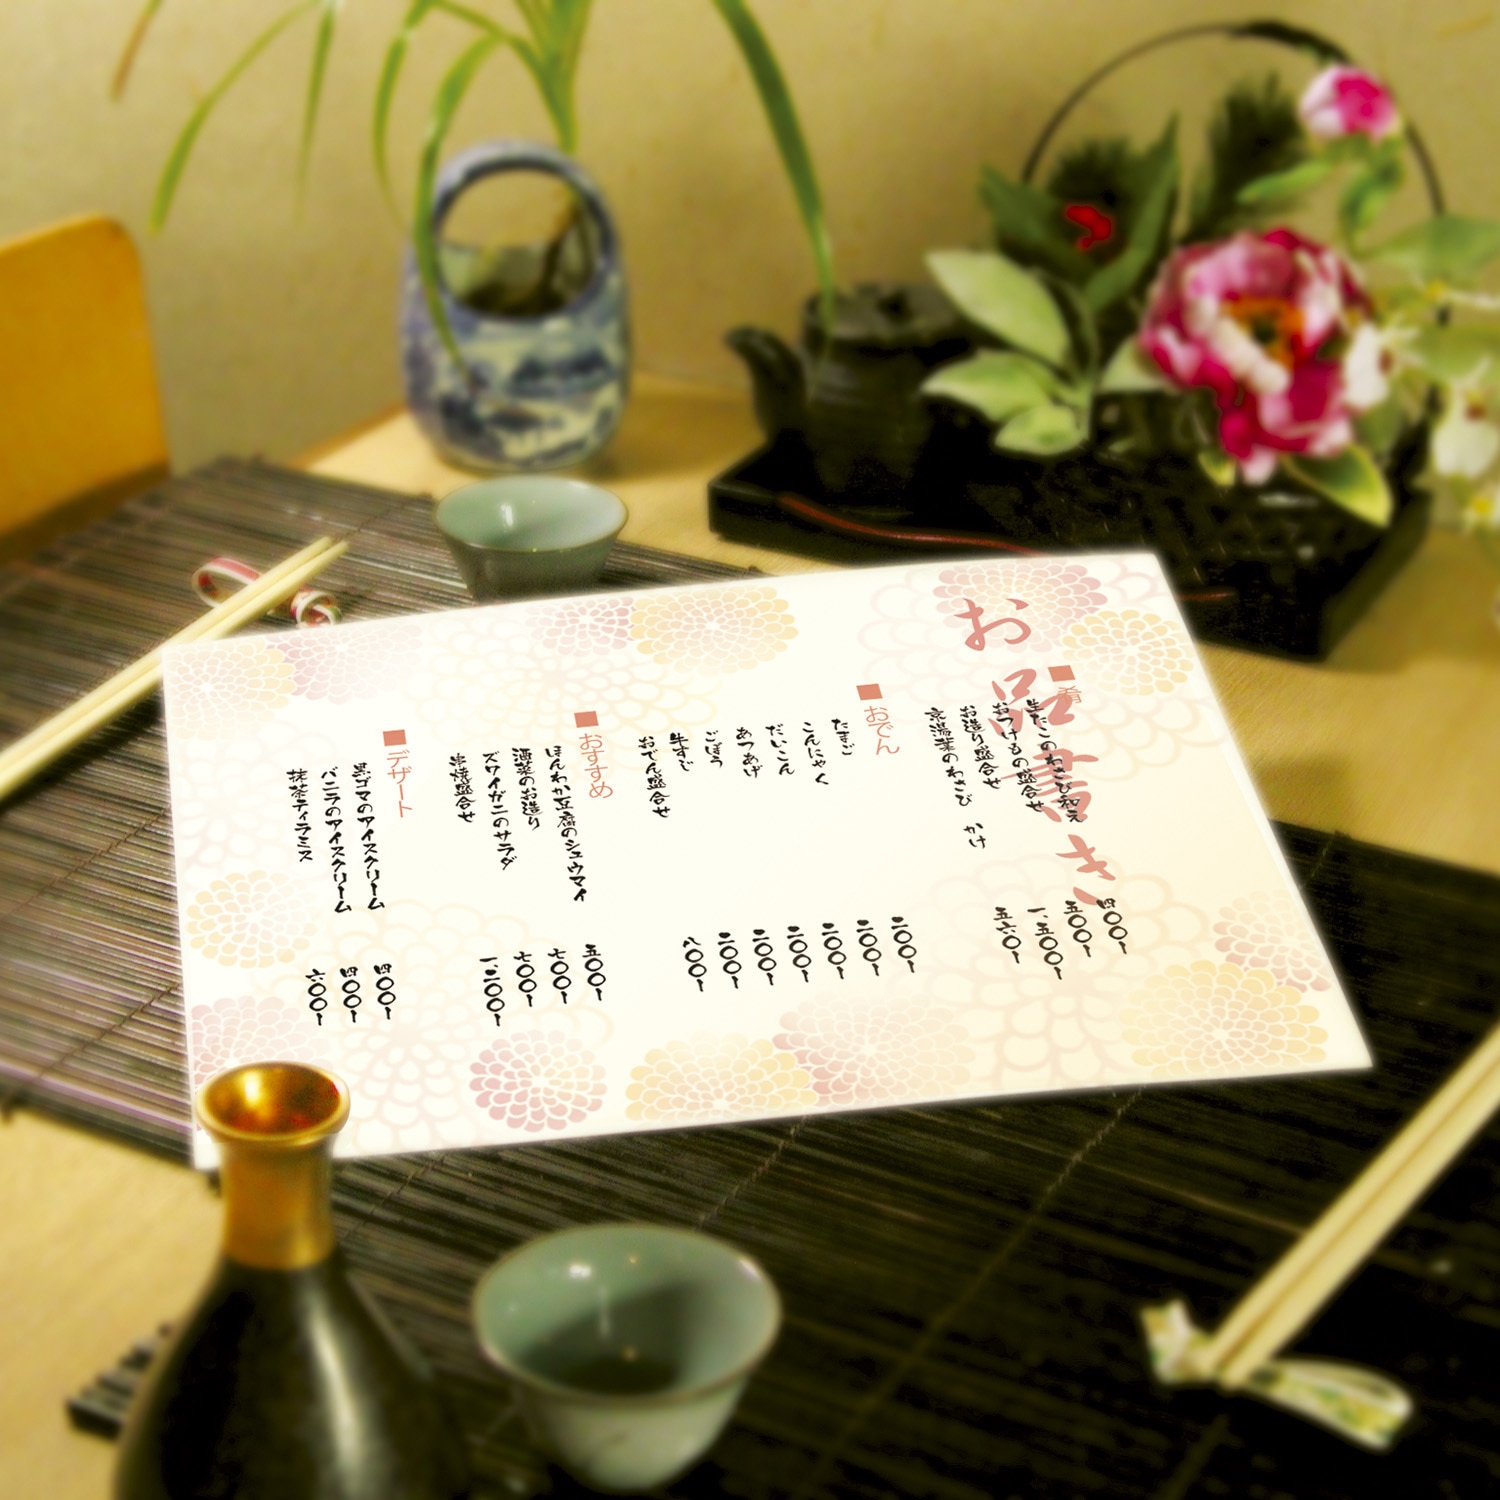 お品書き
■肴
生たこのわさび和え 四〇〇~
おつけもの盛合せ 五〇〇~
お造り盛合せ 一、五〇〇~
京湯葉のわさび かけ 五六〇~
■おでん
たまご 二〇〇~
こんにゃく 二〇〇~
だいこん 二〇〇~
あつあげ 二〇〇~
ごぼう 二〇〇~
牛すじ 二〇〇~
おでん盛合せ 八〇〇~
■おすすめ
ほんわか豆腐のシュウマイ 五〇〇~
海菜のお造り 七〇〇~
ズワイガニのサラダ 七〇〇~
串焼盛合せ 一、二〇〇~
■デザート
黒ゴマのアイスクリーム 四〇〇~
バニラのアイスクリーム 四〇〇~
抹茶ティラミス 六〇〇~